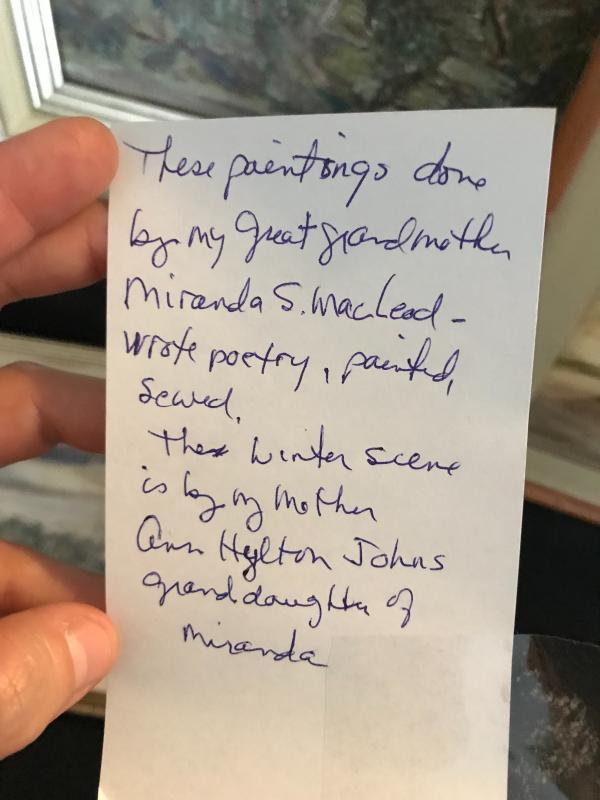 These paintings done
by my Great grandmother
Miranda S. MacLeod -
wrote poetry, painted,
sewed.
The winter scene
is by my mother
Ann Hylton Johns
granddaughter of
miranda